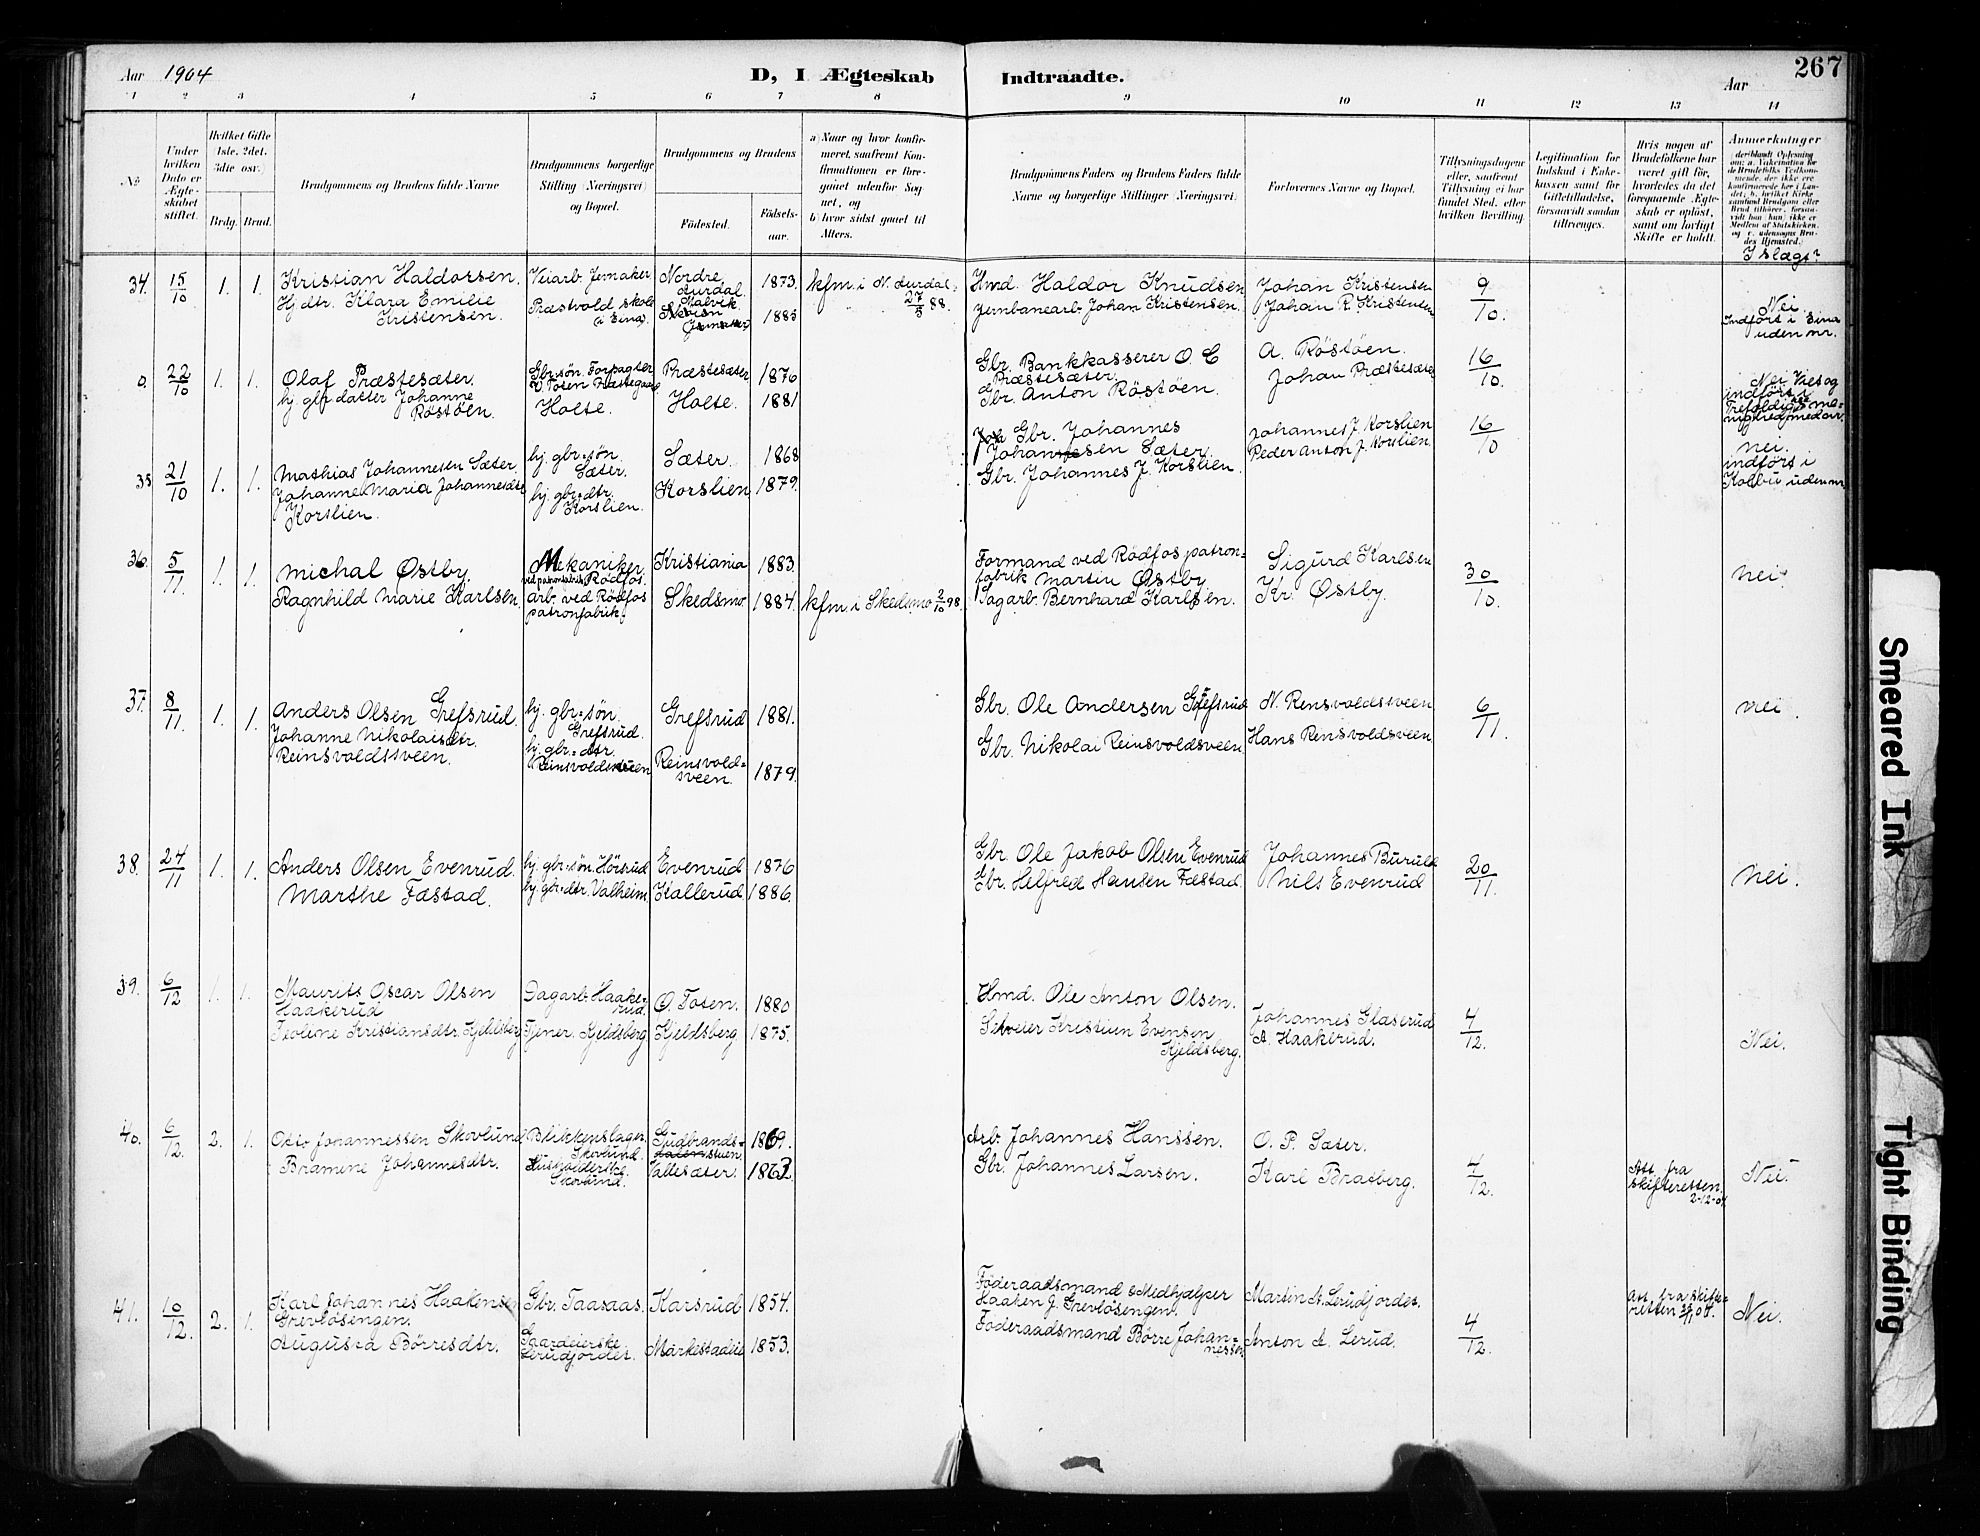 Aar 1904
D, I Ægteskab Indtraadte.
Aar
267
1 2 3 4 5 6 7 8 9 10 11 12 13 14
No.
Under hvilken Dato er Ægteskabet stiftet.
Hvilket Gifte 1ste, 2det, 3die osv.
Brdg. Brud.
Brudgommens og Brudens fulde Navne
Brudgommens borgerlige Stilling (Næringsvei) og Bopæl.
Brudgommens og Brudens
Födested.
Födselsaar.
a) Naar og hvor konfirmeret, saafremt Konfirmationen er foregaaet udenfor Sognet, og
b) hvor sidst gaaet til Alters.
Brudgommens Faders og Brudens Faders fulde Navne og borgerlige Stillinger (Næringsvei).
Forlovernes Navne og Bopæl.
Tillysningsdagene eller, saafremt Tillysning ei har fundet Sted, efter hvilken Bevilling.
Legitimation for Indskud i Enkekassen samt for Giftetilladelse, forsaavidt saadan tiltrænges.
Hvis nogen af Brudefolkene har været gift før, hvorledes da det foregaaende Ægteskab er oplöst, samt om lovligt Skifte er holdt.
Anmerkninger
I slægt?
34. 15/10 1. 1. Kristian Haldorsen. Veiarb. Jemaker Nordre Aurdal. 1873. kfm i N. Aurdal. 27/5 88. Hmd. Haldor Knudsen Johan Kristensen 9/10.
Hj. dtr. Klara Emilie Kristensen. Præstvold skole (i Eina). Malvik 1885 Jernbanearb. Johan Kristensen. Johan R. Kristensen Nei. Indført i Eina uden nr.
0. 22/10 1. 1. Olaf Præstesæter. Gbr. søn. Forpagter V. Toten Præstegaard Præstesæter 1876 Gbr. Bankkasserer O. C Præstesæter. A. Röstöen. 16/10.
hj. gbr. datter Johanne Röstöen. Holte. Holte. 1881 Gbr. Anton Röstöen. Johan Præstesæter Nei
35 21/10 1. 1. Mathias Johannesen Sæter. hj. gbr. søn Sæter. Sæter. 1868 Gbr. Johannes Johansen Sæter. Johannes J. Korslien 16/10
Johanne Maria Johannesdtr Korslien. hj. gbr. dtr. Korslien. Korslien 1879. Gbr. Johannes J. Korslien. Peder Anton J. Korslien. nei. indført i Kolbu uden nr
36. 5/11. 1. 1. Michal Østby. Mekaniker ved patronfabrik Rödfos. Kristiania 1883. Formand ved Rödfos patronfabrik Martin Østby Sigurd Karlsen 30/10. nei.
Ragnhild Marie Karlsen. arb. ved Rödfos patronfabrik. Skedsmo. 1884. kfm i Skedsmo 2/10 98. Sagarb. Bernhard Karlsen. Kr. Østby.
37. 8/11. 1. 1. Anders Olsen Grefsrud. hj. gbr. søn. Grefsrud. Grefsrud 1881. Gbr. Ole Andersen Grefsrud N. Rensvoldsveen 6/11. nei.
Johanne Nikolaisdtr. Reinsvoldssveen. hj. gbr. dtr. Reinsvoldsveen Reinsvoldsveen. 1879. Gbr. Nikolai Reinsvoldsveen Hans Rensvoldsveen
38. 24/11 1. 1. Anders Olsen Evenrud. hj. gbr. søn Hörsrud Evenrud 1876 Gbr. Ole Jakob Olsen Evenrud Johannes Burull 20/11. nei.
Marthe Fæstad. hj. gbr. dtr. Valheim. Kallerud 1886. Gbr. Helfred Hansen Fæstad. Nils Evenrud
39. 6/12 1. 1. Maurits Oscar Olsen Haakerud Dagarb. Haakerud. O. Toten. 1880 Hmd. Ole Anton Olsen. Johannes Glæserud 4/12. Nei.
Teoline Kristiansdtr. Kjeldsberg Tjener. Kjeldsberg Kjeldsberg 1875. Selveier Kristian Evensen Kjeldsberg. A. Haakerud.
40. 6/12. 2. 1. Otto Johannessen Skovlund Blikkenslager. Skovlund. Gudbrandsdalen 1869. Arb. Johannes Hanssen. O. P. Sæter. 4/12. Att. fra skifteretten 2-12-04 Nei.
Bramine Johannesdtr. Husholderske Skovlund. Vallesæter. 1863. Gbr. Johannes Larsen. Karl Bratberg.
41. 10/12. 2. 1. Karl Johannes Haakensen Grevlösengen. Gbr. Taasaas. Karsrud 1854. Föderaadsmand & Medhjælper Haaken J. Grevlösengen. Martin A. Lerudjordet. 4/12. Att. fra skifteretten Nei.
Augusta Börresdtr. Gaardeierske Lerudjordet. Markestadeie 1853. Föderaadsmand Börre Johannessen Anton A. Lerud.
Smeared Ink
Tight Binding